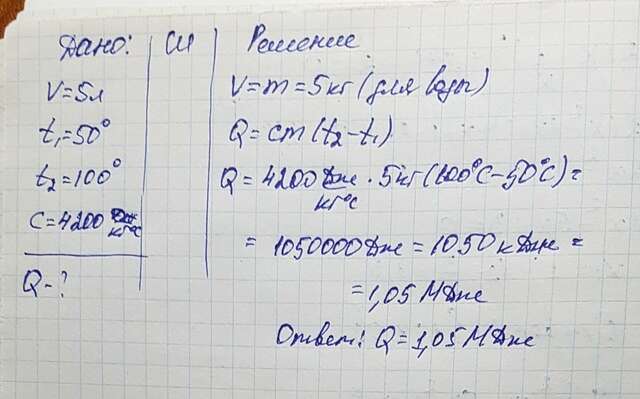 Дано:
V=5л
t₁=50°
t₂=100°
C=4200 Дж/кг°С
Q-?
СИ
Решение
V=m=5кг (для воды)
Q=cm(t₂-t₁)
Q=4200 Дж/кг°С · 5кг(100°С-50°С)=
= 1050000Дж = 1050 кДж =
=1,05 МДж
Ответ: Q=1,05 МДж